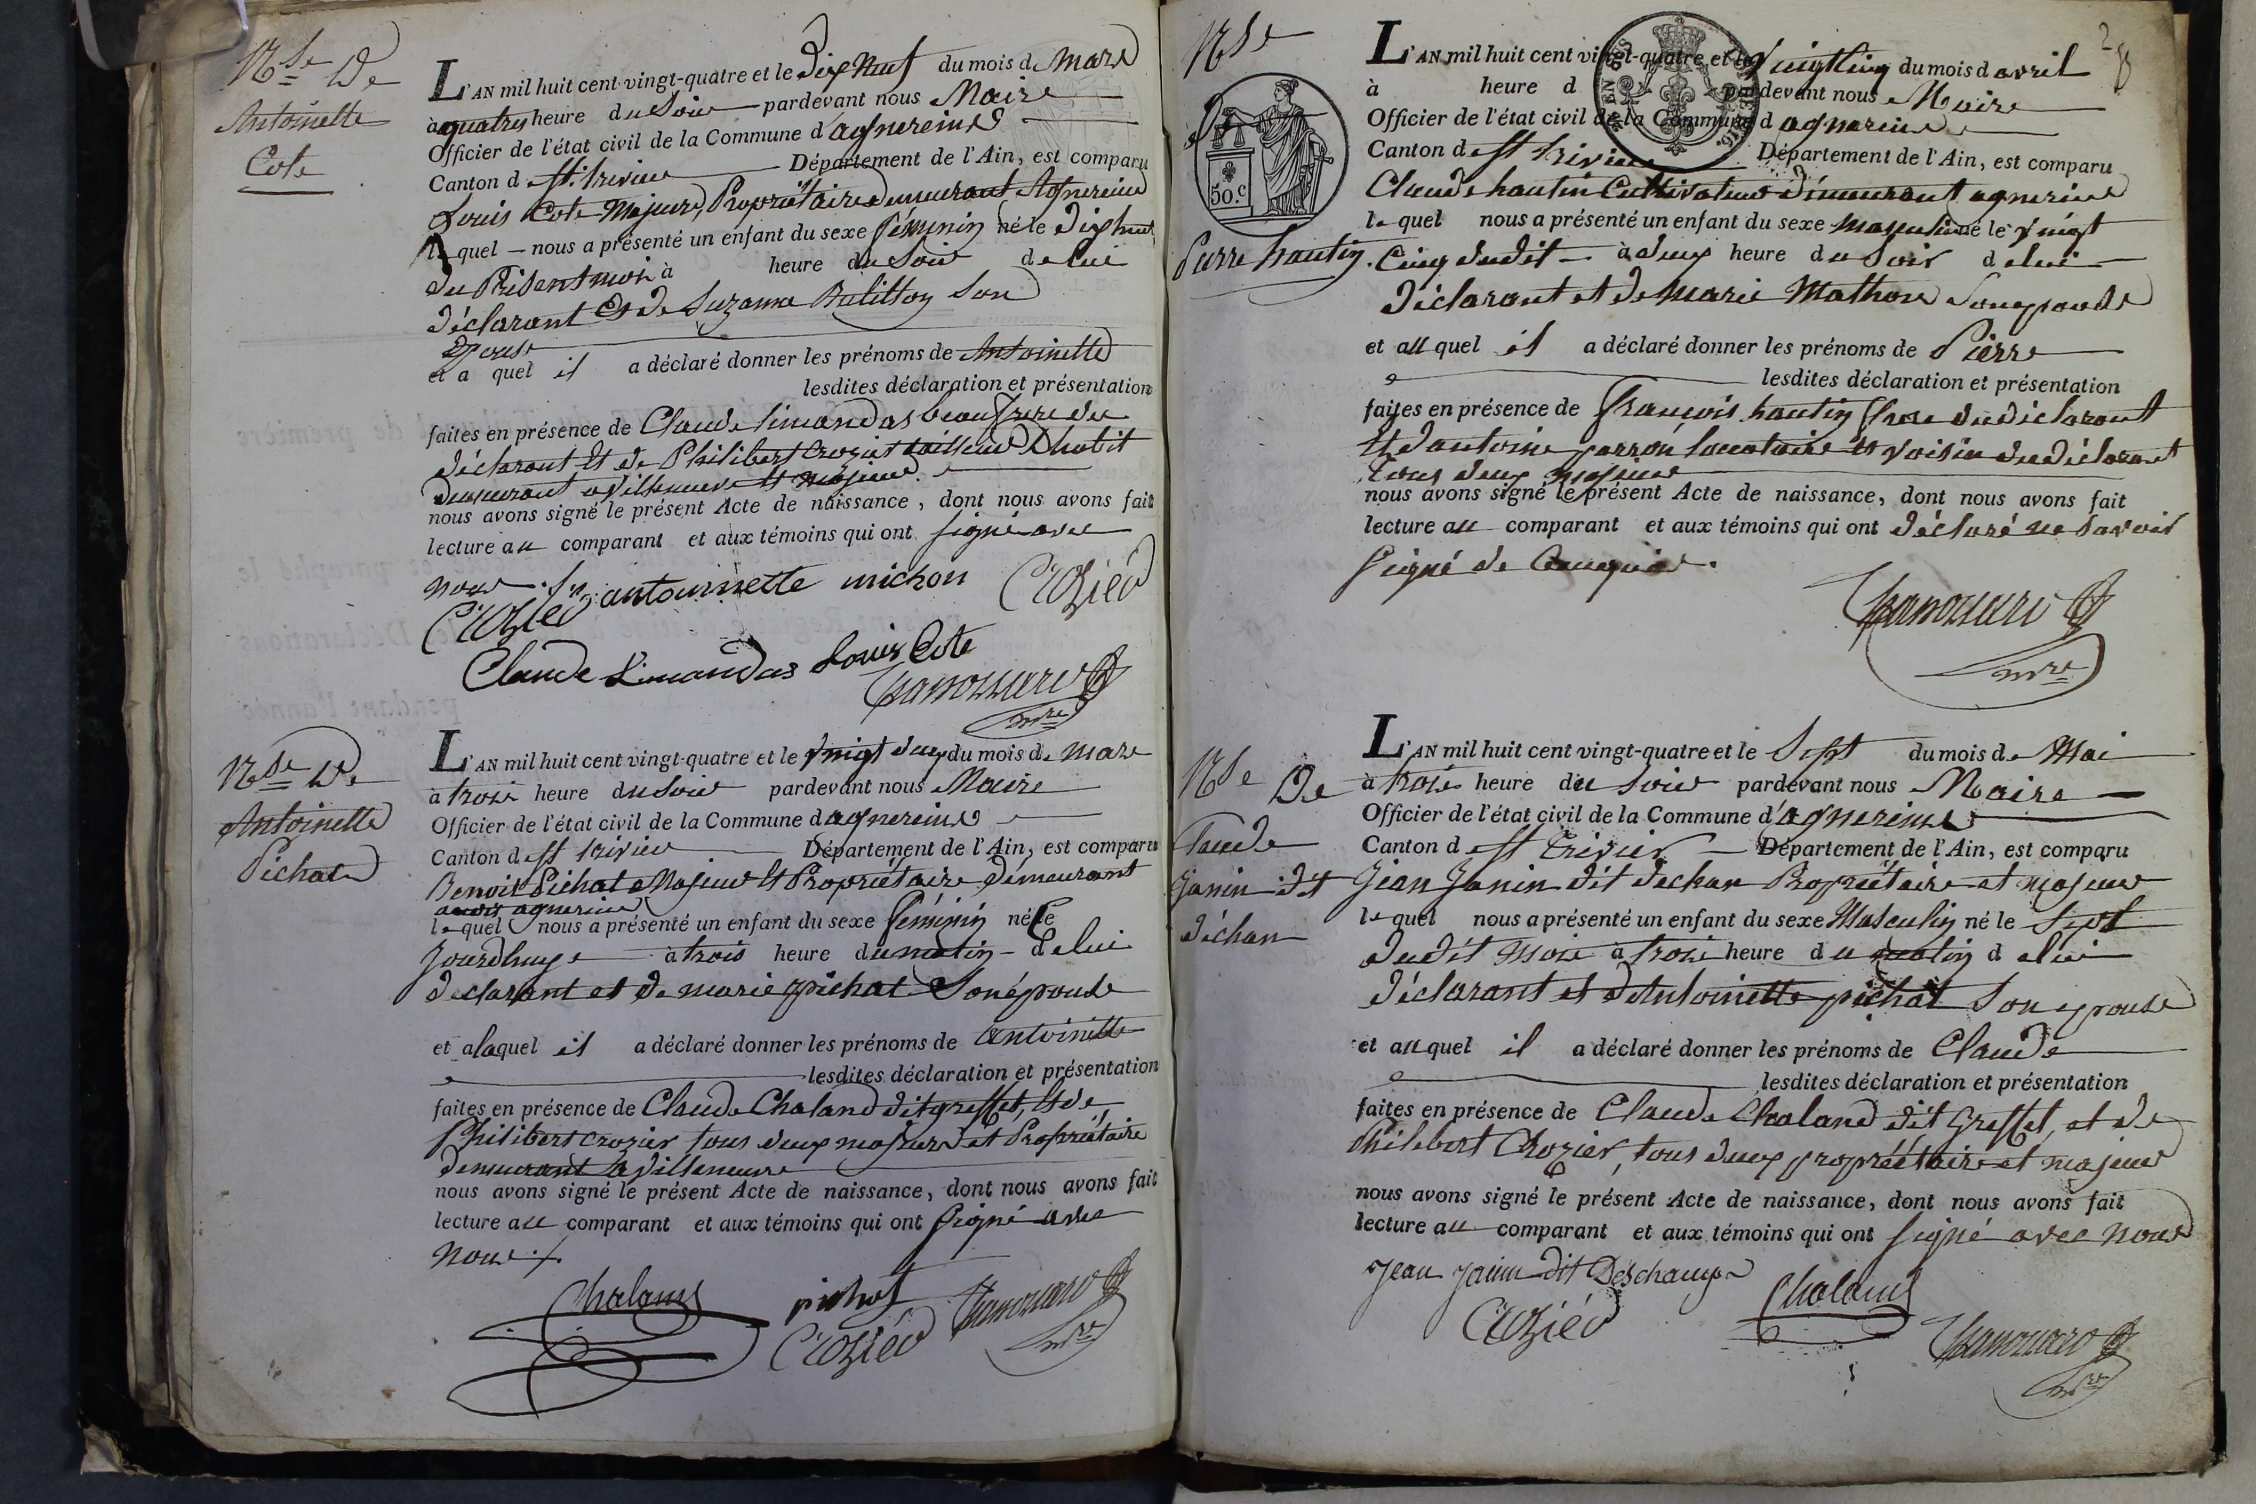 Nse De
Antoinette
Cote
L'AN mil huit cent vingt-quatre et le Dix Neuf du mois de Mars
à quatres heure du Soir pardevant nous Maire
Officier de l'état civil de la Commune d'agnereins
Canton de St. trivier Département de l'Ain, est comparu
Louis Cote Majeure, Propriétaire demeurant Agnereins
lequel nous a présenté un enfant du sexe féminin né le dix huit
du Présent mois à heure du Soir de lui
déclarant Et de Suzanne Balitton Son
Epouse
et a quel il a déclaré donner les prénoms de Antoinette
lesdites déclaration et présentation
faites en présence de Claude Simandas beaufrere du
déclarant Et de Philibert Crozier tailleur D'habit
demeurant a villeneuve Et majeur.
nous avons signé le présent Acte de naissance, dont nous avons fait
lecture au comparant et aux témoins qui ont signé avec
nous
Crozier antoinette michon Crozier
Claude Simandas Louis Cote
mre
Nse De
Antoinette
Pichat
L'AN mil huit cent vingt-quatre et le vingt deux du mois de mars
à trois heure du Soir pardevant nous Maire
Officier de l'état civil de la Commune d'agnereins
Canton de St trivier Département de l'Ain, est comparu
Benoit Pichat Majeur Et Propriétaire Demeurant
agnereins
lequel nous a présenté un enfant du sexe féminin né Ce
jourdhuy à trois heure du matin de lui
déclarant et de marie pichat Son épouse
et alaquel il a déclaré donner les prénoms de antoinette
lesdites déclaration et présentation
faites en présence de Claude Chaland dit greffet, Et de
Philibert crozier tous deux majeurs et Propriétaire
demeurant a villeneuve
nous avons signé le présent Acte de naissance, dont nous avons fait
lecture au comparant et aux témoins qui ont Signé avec
nous
Chaland pichat
Crozier
mre
Nse
De
50.c
Pierre hautin
2
L'AN mil huit cent vingt-quatre et le Vingt Cinq du mois d avril
à heure d pardevant nous Maire
Officier de l'état civil de la Commune d agnereins
Canton de St trivier Département de l'Ain, est comparu
Claude hautin Cultivateur demeurant agnereins
lequel nous a présenté un enfant du sexe masculin né le vingt
Cinq dudit à deux heure du Soir de lui
déclarant et de marie Mathon Son epouse
et au quel il a déclaré donner les prénoms de Pierre
lesdites déclaration et présentation
faites en présence de françois hautin frere du déclarant
Et d'antoine locataire Et voisin du déclarant
tous deux majeur
nous avons signé le présent Acte de naissance, dont nous avons fait
lecture au comparant et aux témoins qui ont déclaré ne Savoir
Signé de
mre
Nse
De
Claude
Janin dit
déchan
L'AN mil huit cent vingt-quatre et le Sept du mois de Mai
à trois heure du Soir pardevant nous Maire
Officier de l'état civil de la Commune d'agnereins
Canton de St trivier Département de l'Ain, est comparu
Jean Janin dit dechan Propriétaire et majeur
lequel nous a présenté un enfant du sexe Masculin né le Sept
dudit Mois à trois heure du matin de lui
déclarant et d'Antoinette pichat Son epouse
et au quel il a déclaré donner les prénoms de Claude
lesdites déclaration et présentation
faites en présence de Claude Chaland dit Greffet, et de
Philebert Crozier, tous deux propriétaire et majeur
nous avons signé le présent Acte de naissance, dont nous avons fait
lecture au comparant et aux témoins qui ont signé avec nous
Jean Janin dit Deschamp
Crozier Chaland
mre